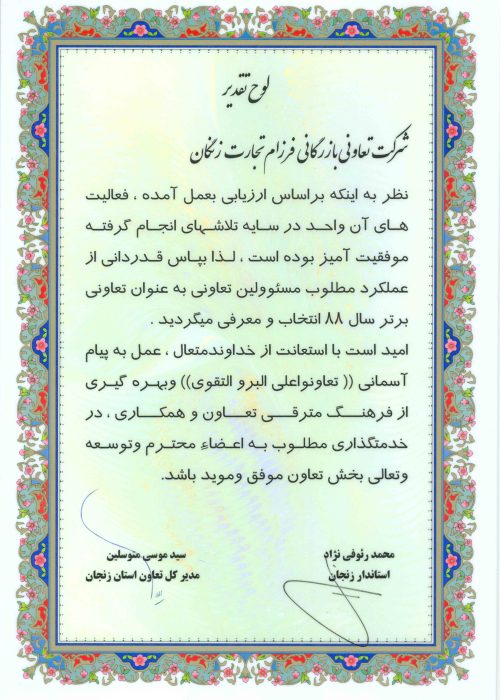 لوح تقدیر
شرکت تعاونی بازرگانی فرزام تجارت زنگان
نظر به اینکه براساس ارزیابی بعمل آمده ، فعالیت
های آن واحد در سایه تلاشهای انجام گرفته
موفقیت آمیز بوده است ، لذا بپاس قدردانی از
عملکرد مطلوب مسئوولین تعاونی به عنوان تعاونی
برتر سال ۸۸ انتخاب و معرفی میگردید .
امید است با استعانت از خداوندمتعال ، عمل به پیام
آسمانی (( تعاونواعلی البرو التقوی)) وبهره گیری
از فرهنگ مترقی تعاون و همکاری ، در
خدمتگذاری مطلوب به اعضاءِ محترم وتوسعه
وتعالی بخش تعاون موفق وموید باشد.
محمد رئوفی نژاد
استاندار زنجان
سید موسی متوسلین
مدیر کل تعاون استان زنجان